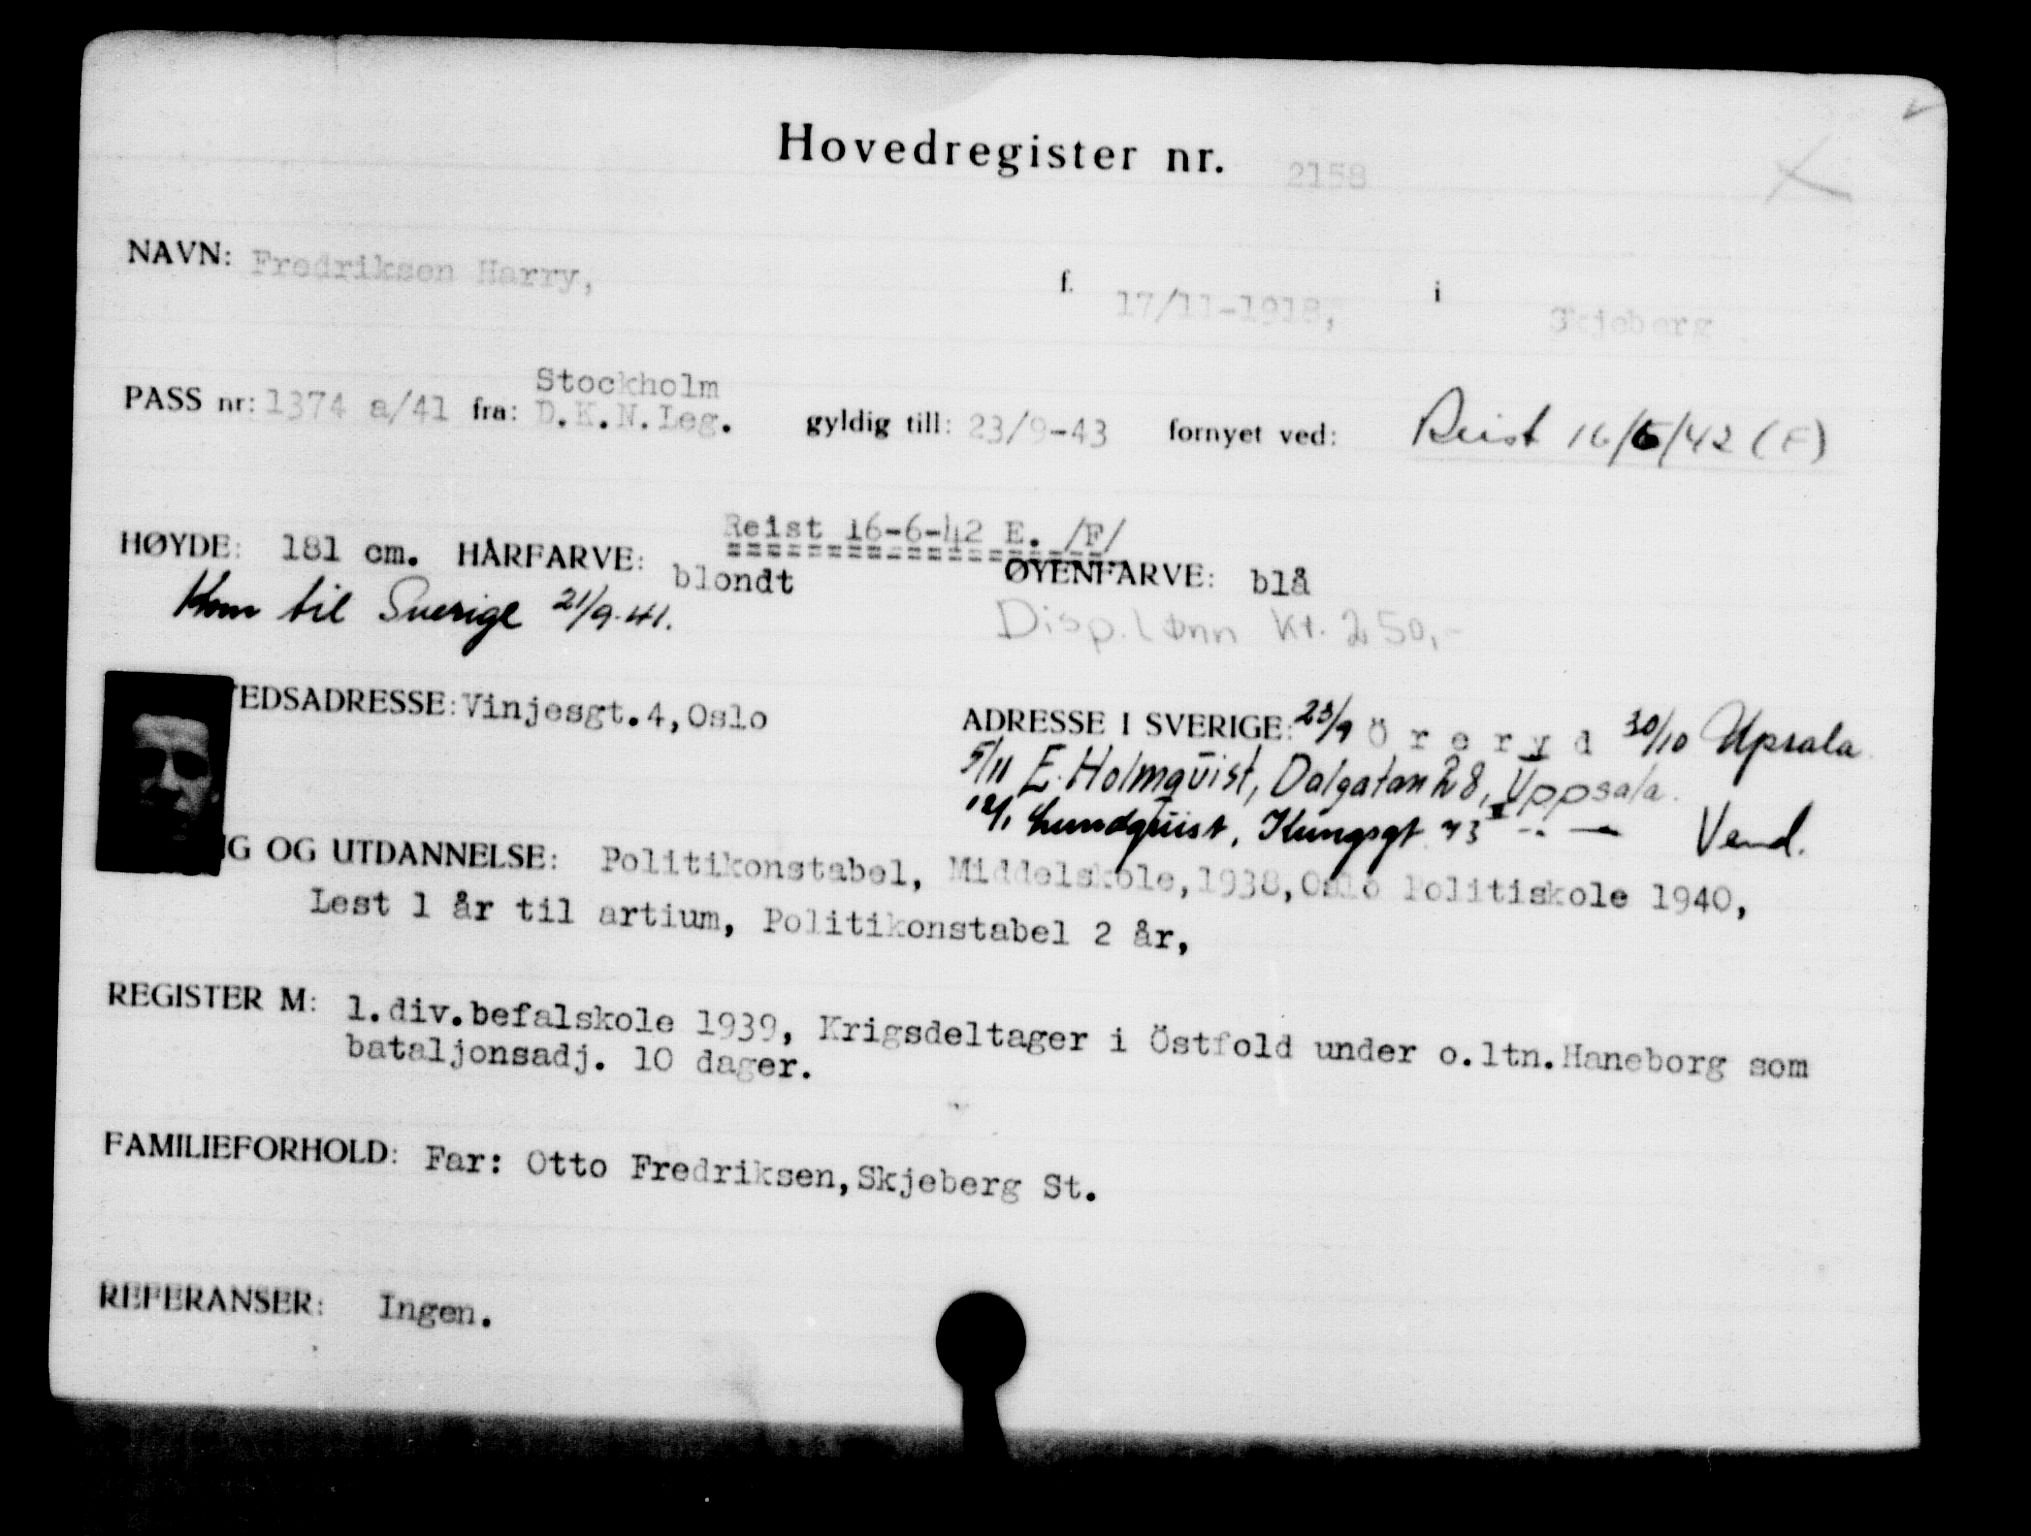 Hovedregister nr. 2158
NAVN: Fredriksen Harry, f. 17/11-1918, i Skjeberg
PASS nr: 1374 a/41 fra: Stockholm D.K.N.Leg. gyldig till: 23/9-43 fornyet ved: Reist 16/6/42 (F)
Reist 16-6-42 E. /F/
HØYDE: 181 cm. HÅRFARVE: blondt ØYENFARVE: blå
Kom til Sverige 21/9.41. Disp.lønn kr. 250,-
TEDSADRESSE: Vinjesgt.4,Oslo ADRESSE I SVERIGE: 23/9 Ö r e r y d 30/10 Upsala
5/11 E. Holmquist, Dalgatan 28, Uppsala.
12/1 Lundquist, Kungsgt 73 II -"- Vend.
NG OG UTDANNELSE: Politikonstabel, Middelskole,1938,Oslo Politiskole 1940,
Lest 1 år til artium, Politikonstabel 2 år,
REGISTER M: 1.div.befalskole 1939, Krigsdeltager i Östfold under o.ltn.Haneborg som
bataljonsadj. 10 dager.
FAMILIEFORHOLD: Far: Otto Fredriksen,Skjeberg St.
REFERANSER: Ingen.